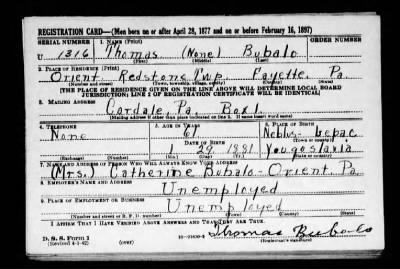 REGISTRATION CARD—(Men born on or after April 28, 1877 and on or before February 16, 1897)
SERIAL NUMBER 1. NAME (Print) ORDER NUMBER
U 1316 Thomas (None) Bubalo
(First) (Middle) (Last)
2. PLACE OF RESIDENCE (Print)
Orient, Redstone Twp. Fayette, Pa.
(Number and street) (Town, township, village, or city) (County) (State)
[THE PLACE OF RESIDENCE GIVEN ON THE LINE ABOVE WILL DETERMINE LOCAL BOARD
JURISDICTION; LINE 2 OF REGISTRATION CERTIFICATE WILL BE IDENTICAL]
3. MAILING ADDRESS
Cardale, Pa. Box 1
[Mailing address if other than place indicated on line 2. If same insert word same]
4. TELEPHONE 5. AGE IN YEARS 6. PLACE OF BIRTH
None 61 Lepac
DATE OF BIRTH (Town or county)
1 29 1881 Yougoslavia
(Exchange) (Number) (Mo.) (Day) (Yr.) (State or country)
7. NAME AND ADDRESS OF PERSON WHO WILL ALWAYS KNOW YOUR ADDRESS
(Mrs.) Catherine Bubalo - Orient, Pa.
8. EMPLOYER'S NAME AND ADDRESS
Unemployed
9. PLACE OF EMPLOYMENT OR BUSINESS
Unemployed
(Number and street or R. F. D. number) (Town) (County) (State)
I AFFIRM THAT I HAVE VERIFIED ABOVE ANSWERS AND THAT THEY ARE TRUE.
Thomas Bubalo
D. S. S. Form 1
(Revised 4-1-42) (over) (Registrant's signature)